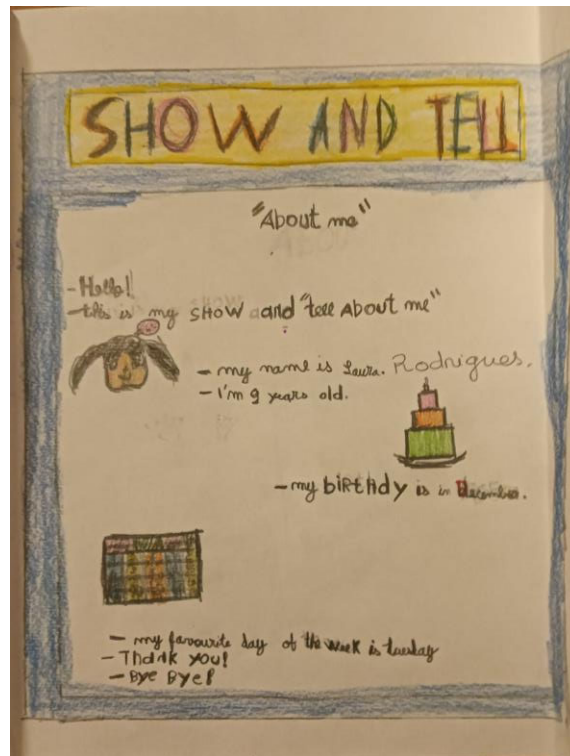 SHOW AND TELL
"About me"
- Hello!
- this is my SHOW and "tell ABOUT me"
- my name is Laura. Rodrigues.
- I'm 9 years old.
- my biRtHdy is in December.
- my favourite day of the week is tuesday
- Thank you!
- Bye Bye!